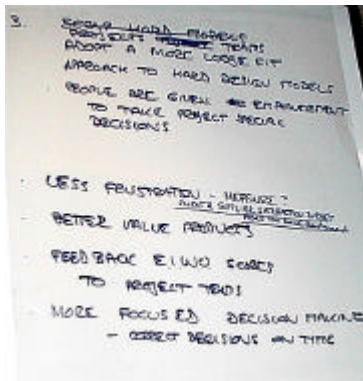 3. PROJECTS TEAMS
ADOPT A MORE LOOSE FIT
APPROACH TO HARD DESIGN MODELS
· PEOPLE ARE GIVEN EMPOWERMENT
TO TAKE PROJECT SPECIFIC
DECISIONS
· LESS FRUSTRATION - MEASURE?
· BETTER VALUE PRODUCTS
· FEEDBACK
TO PROJECT
· MORE FOCUSED DECISION MAKING
- CORRECT DECISIONS ON TIME